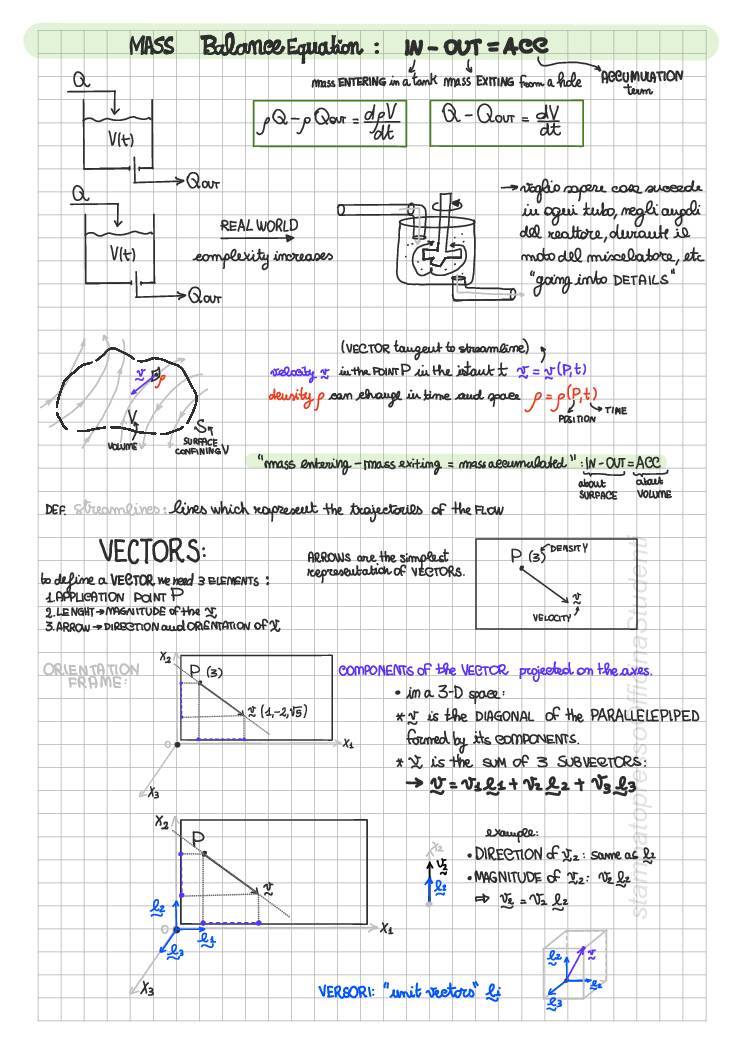 MASS Balance Equation : IN - OUT = ACC
mass ENTERING in a tank mass EXITING from a hole
ACCUMULATION term
Q
V(t)
QOUT
ρQ - ρQOUT = dρV/dt
Q - QOUT = dV/dt
Q
V(t)
QOUT
REAL WORLD
complexity increases
→ voglio sapere cosa succede
in ogni tubo, negli angoli
del reattore, durante il
moto del miscelatore, etc
"going into DETAILS"
(VECTOR tangent to streamline)
velocity v in the POINT P in the istant t v = v(P,t)
density ρ can change in time and space ρ = ρ(P,t)
POSITION
TIME
v
ρ
V
VOLUME
S
SURFACE
CONFINING V
"mass entering - mass exiting = mass accumulated" : IN - OUT = ACC
about
SURFACE
about
VOLUME
DEF. Streamlines: lines which rapresent the trajectories of the FLOW
VECTORS:
to define a VECTOR we need 3 ELEMENTS :
1. APPLICATION POINT P
2. LENGHT → MAGNITUDE of the v
3. ARROW → DIRECTION and ORIENTATION of v
ARROWS are the simplest
representation of VECTORS.
P (3) DENSITY
v
VELOCITY
ORIENTATION
FRAME:
X2
P (3)
v (1,-2,√5)
O
X1
X3
COMPONENTS of the VECTOR projected on the axes.
• in a 3-D space:
* v is the DIAGONAL of the PARALLELEPIPED
formed by its COMPONENTS.
* v is the SUM of 3 SUBVECTORS:
→ v = v1 e1 + v2 e2 + v3 e3
X2
P
v
e2
O
e1
e3
X1
X3
example:
X2
v2
e2
• DIRECTION of v2 : same as e2
• MAGNITUDE of v2 : v2 e2
⇒ v2 = v2 e2
VERSORI: "unit vectors" ei
e2
v
e2
e3
stampatopressoOfficinaStudenti